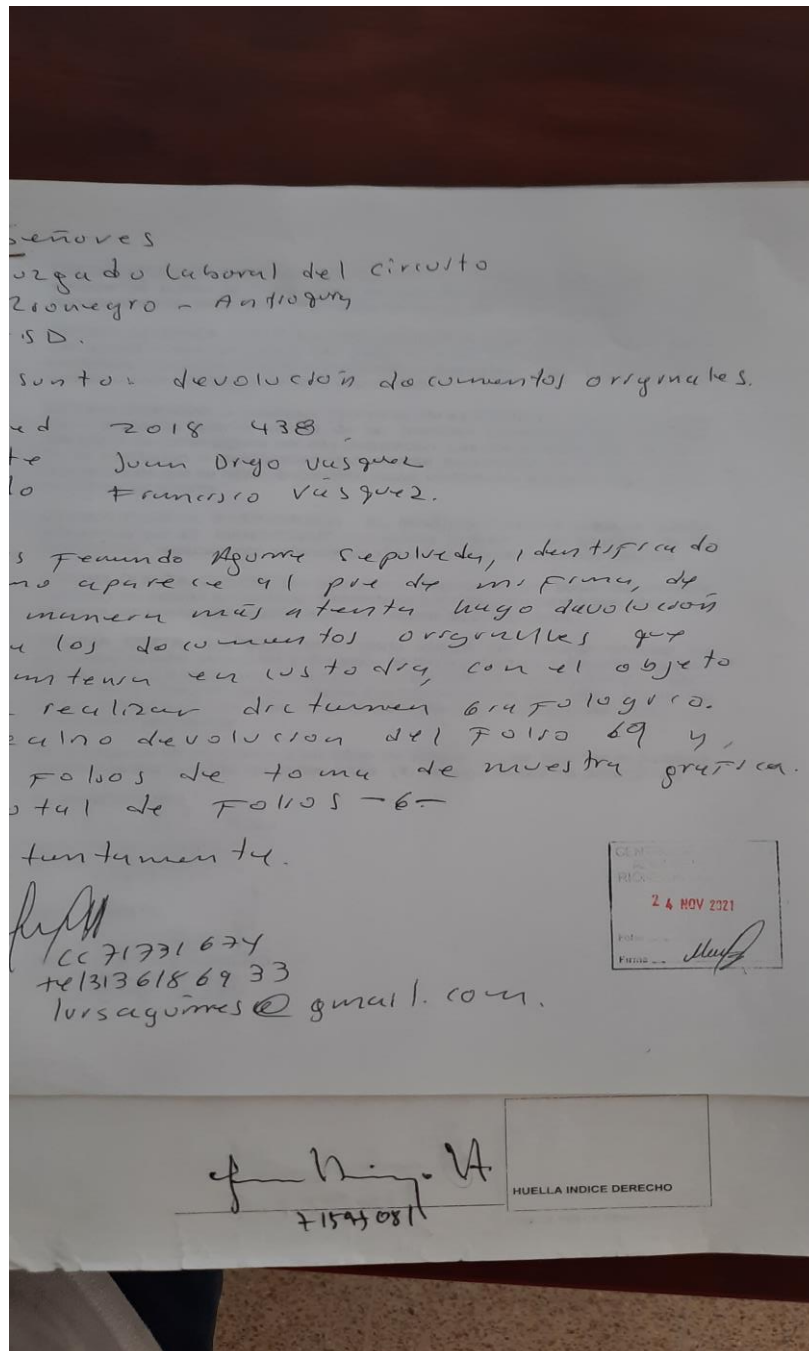 Señores
uzgado Laboral del circuito
Rionegro - Antioquia
SD.
sunto: devolución documentos originales.
ed 2018 438
te Juan Diego Vasquez
do Francisco Vásquez.
s Fernando Aguirre Sepulveda, identificado
mo aparece al pie de mi firma, de
manera más atenta hago devolución
los documentos originales que
tenia en custodia, con el objeto
realizar dictamen Grafologico.
devolucion del Folio 69 y,
Folios de toma de muestra grafica.
otal de Folios -6-
tentamente.
CC 71731674
tel 313 618 69 33
luisaguirres@gmail.com.
24 NOV 2021
Firma
HUELLA INDICE DERECHO